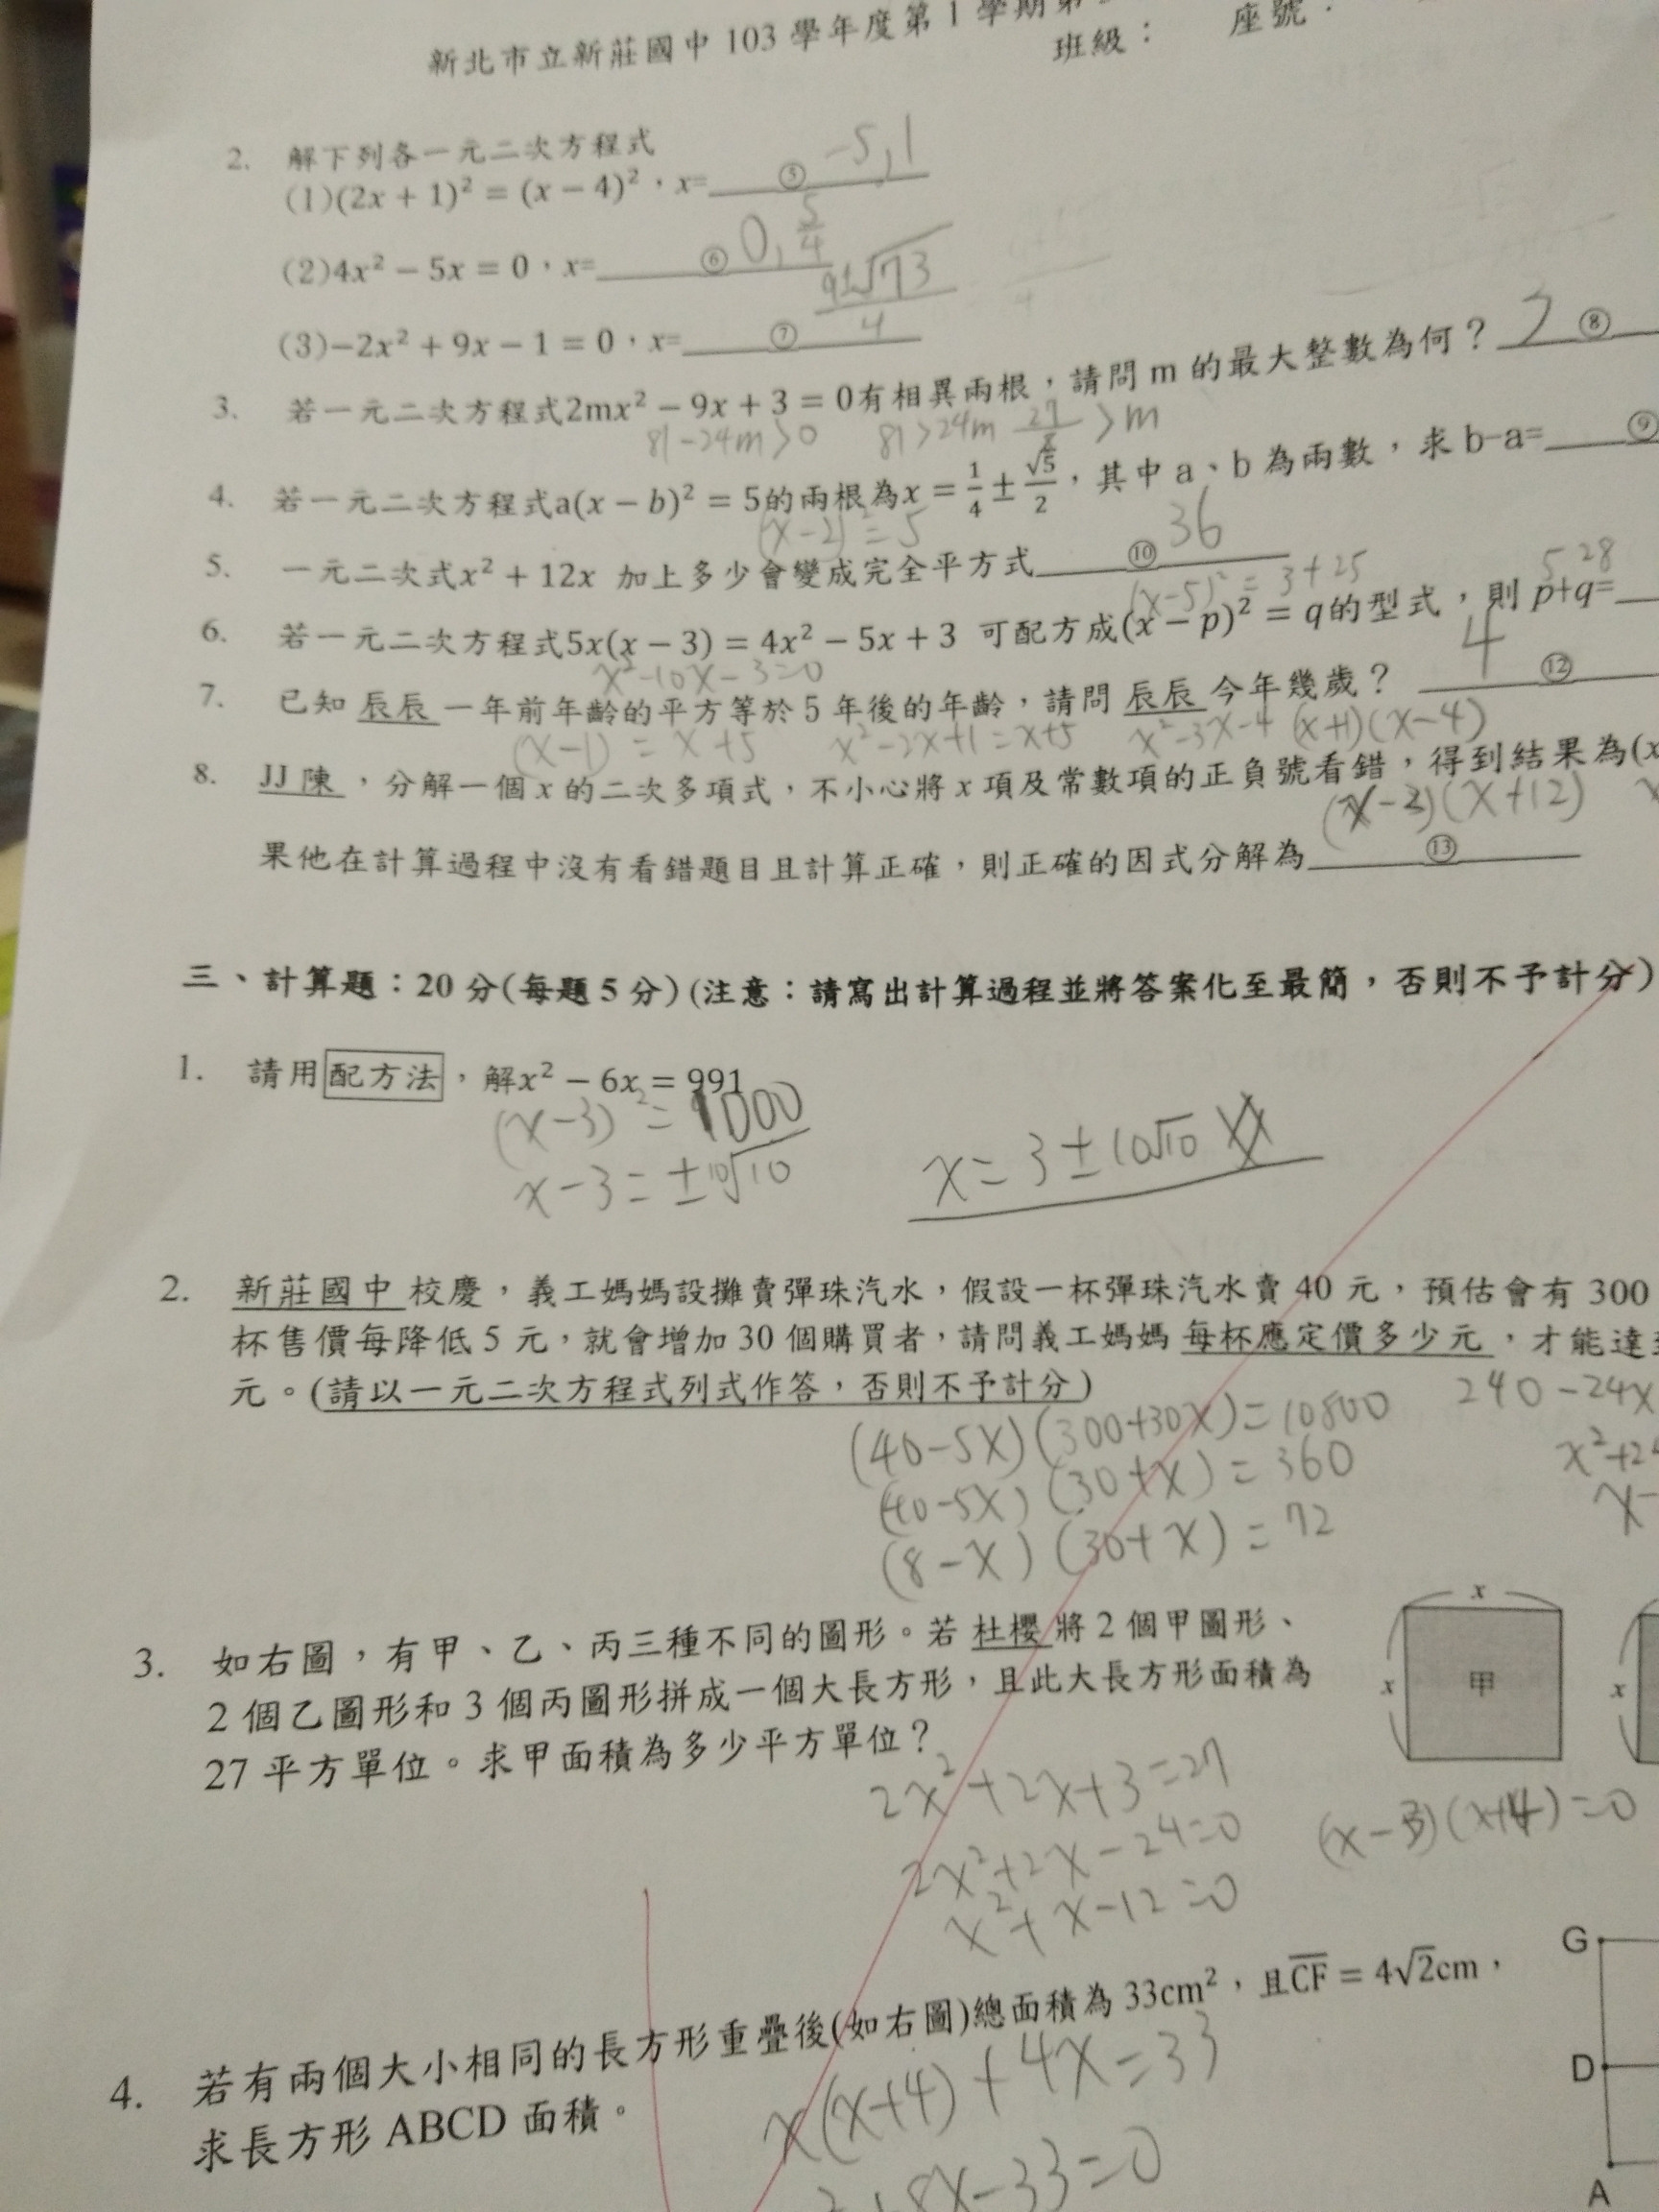 新北市立新莊國中 103 學年度第 1 學期第
班級： 座號：
2. 解下列各一元二次方程式
(1)(2x + 1)² = (x − 4)²，x= ⑤ -5,1
(2)4x² − 5x = 0，x= ⑥ 0, 5/4
(3)−2x² + 9x − 1 = 0，x= ⑦ 9±√73/4
3. 若一元二次方程式2mx² − 9x + 3 = 0有相異兩根，請問 m 的最大整數為何？ ⑧
81-24m>0 81>24m 27/8 >m
4. 若一元二次方程式a(x − b)² = 5的兩根為x = 1/4 ± √5/2，其中 a、b 為兩數，求 b−a= ⑨
(x-2)² = 5
5. 一元二次式x² + 12x 加上多少會變成完全平方式 ⑩ 36
(x-5)² = 3+25 5 28
6. 若一元二次方程式5x(x − 3) = 4x² − 5x + 3 可配方成(x − p)² = q的型式，則 p+q=
x²-10x-3=0
7. 已知 辰辰 一年前年齡的平方等於 5 年後的年齡，請問 辰辰 今年幾歲？ 4 ⑫
(x-1) = x+5 x²-2x+1=x+5 x²-3x-4 (x+1)(x-4)
8. JJ 陳，分解一個 x 的二次多項式，不小心將 x 項及常數項的正負號看錯，得到結果為(x
(x-2)(x+12)
果他在計算過程中沒有看錯題目且計算正確，則正確的因式分解為 ⑬
三、計算題：20 分(每題 5 分) (注意：請寫出計算過程並將答案化至最簡，否則不予計分)
1. 請用配方法，解x² − 6x = 991
(x-3)² = 1000
x-3=±10√10 x=3±10√10
2. 新莊國中 校慶，義工媽媽設攤賣彈珠汽水，假設一杯彈珠汽水賣 40 元，預估會有 300
杯售價每降低 5 元，就會增加 30 個購買者，請問義工媽媽 每杯應定價多少元，才能達
元。(請以一元二次方程式列式作答，否則不予計分)
(40-5x)(300+30x)=10800 240-24x
(40-5x)(30+x)=360 x²+2
(8-x)(30+x)=72 x-
3. 如右圖，有甲、乙、丙三種不同的圖形。若 杜櫻 將 2 個甲圖形、
2 個乙圖形和 3 個丙圖形拼成一個大長方形，且此大長方形面積為
27 平方單位。求甲面積為多少平方單位？
x
x 甲 x
2x²+2x+3=27
2x²+2x-24=0 (x-3)(x+4)=0
x²+x-12=0
4. 若有兩個大小相同的長方形重疊後(如右圖)總面積為 33cm²，且CF = 4√2cm，
求長方形 ABCD 面積。
x(x+4)+4x=33
+8x-33=0
G
D
A